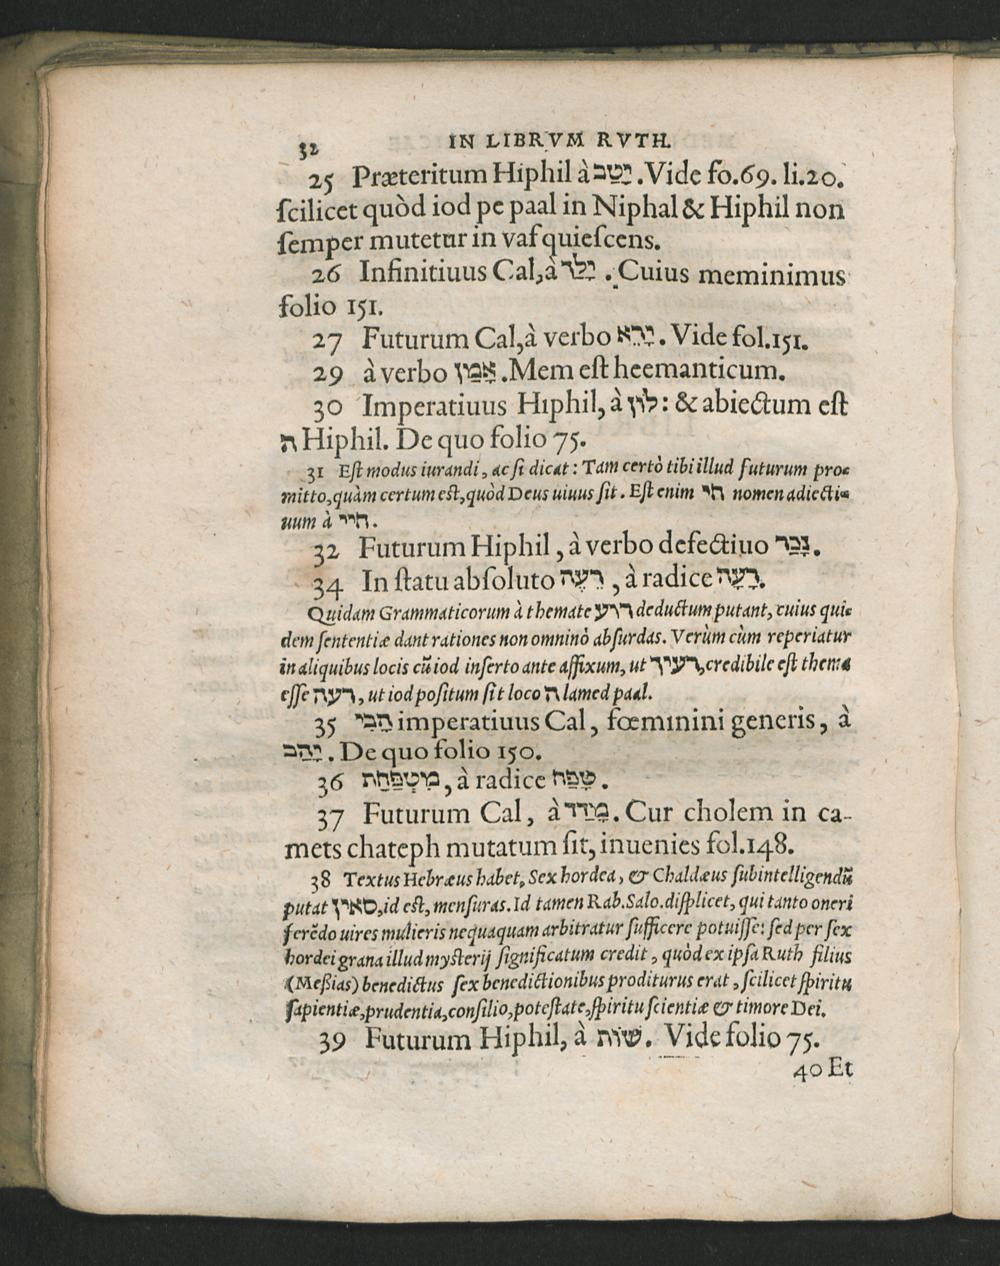 32 IN LIBRVM RVTH.
25 Præteritum Hiphil à יָטַב. Vide fo.69. li.20.
scilicet quòd iod pe paal in Niphal & Hiphil non
semper mutetur in vaf quiescens.
26 Infinitiuus Cal, à יָלַד. Cuius meminimus
folio 151.
27 Futurum Cal, à verbo יָרֵא. Vide fol.151.
29 à verbo אָמַץ. Mem est heemanticum.
30 Imperatiuus Hiphil, à לוּן: & abiectum est
ה Hiphil. De quo folio 75.
31 Est modus iurandi, ac si dicat: Tam certò tibi illud futurum pro-
mitto, quàm certum est, quòd Deus uiuus sit. Est enim חי nomen adiecti-
uum à חיי.
32 Futurum Hiphil, à verbo defectiuo נָכַר.
34 In statu absoluto רֵעֶה, à radice רָעָה.
Quidam Grammaticorum à themate רוע deductum putant, cuius qui-
dem sententiæ dant rationes non omninò absurdas. Verùm cùm reperiatur
in aliquibus locis cū iod inserto ante affixum, ut רעיך, credibile est thema
esse רעה, ut iod positum sit loco ה lamed paal.
35 הָבִי imperatiuus Cal, fœminini generis, à
יָהַב. De quo folio 150.
36 מִטְפַּחַת, à radice טָפַח.
37 Futurum Cal, à מָדַד. Cur cholem in ca-
mets chateph mutatum sit, inuenies fol.148.
38 Textus Hebræus habet, Sex hordea, & Chaldæus subintelligendū
putat סאין, id est, mensuras. Id tamen Rab. Salo. displicet, qui tanto oneri
ferēdo uires mulieris nequaquam arbitratur sufficere potuisse: sed per sex
hordei grana illud mysterij significatum credit, quòd ex ipsa Ruth filius
(Meßias) benedictus sex benedictionibus proditurus erat, scilicet spiritu
sapientiæ, prudentia, consilio, potestate, spiritu scientiæ & timore Dei.
39 Futurum Hiphil, à שׁוּת. Vide folio 75.
40 Et